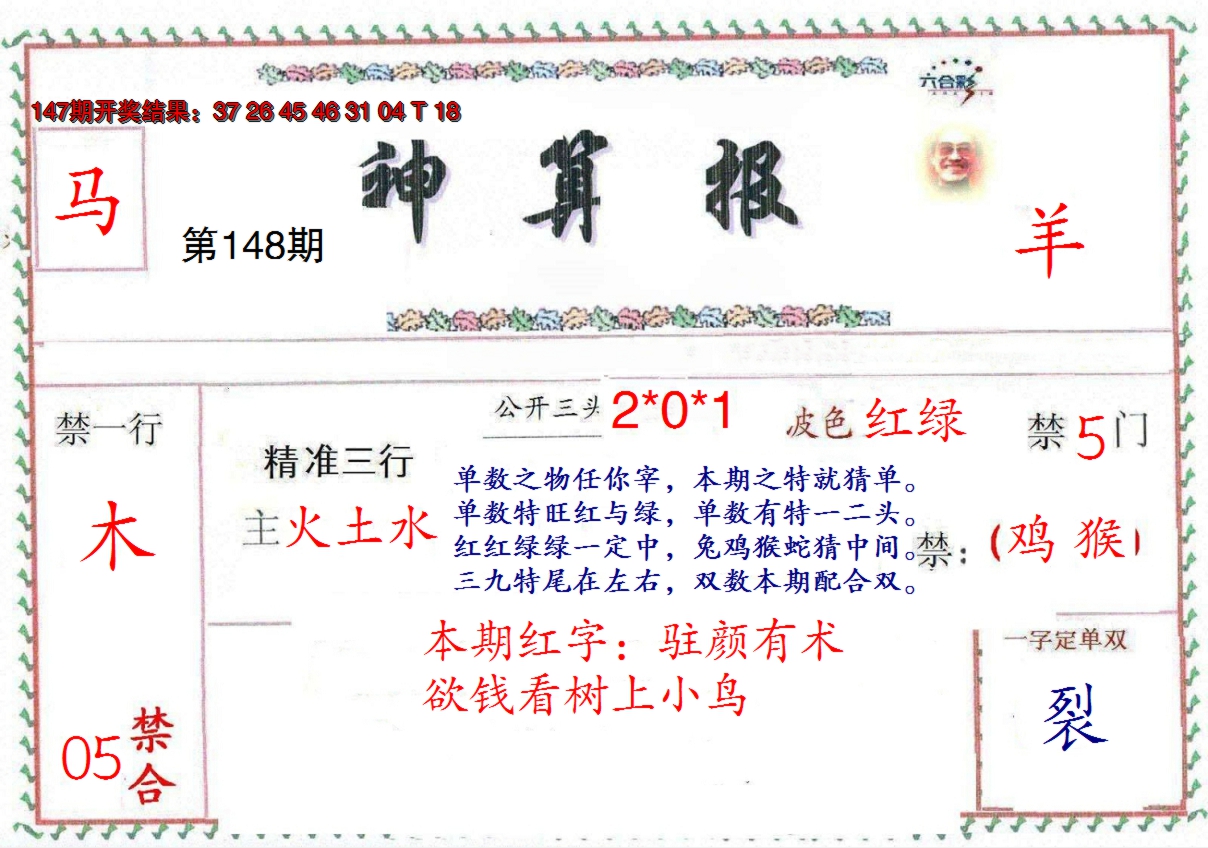 六合彩
147期开奖结果：37 26 45 46 31 04 T 18
马
神算报
第148期
羊
禁一行
木
05
禁合
精准三行
主火土水
公开三头 2*0*1
波色 红绿
禁5门
单数之物任你宰，本期之特就猜单。
单数特旺红与绿，单数有特一二头。
红红绿绿一定中，兔鸡猴蛇猜中间。
三九特尾在左右，双数本期配合双。
禁：（鸡 猴）
本期红字：驻颜有术
欲钱看树上小鸟
一字定单双
裂